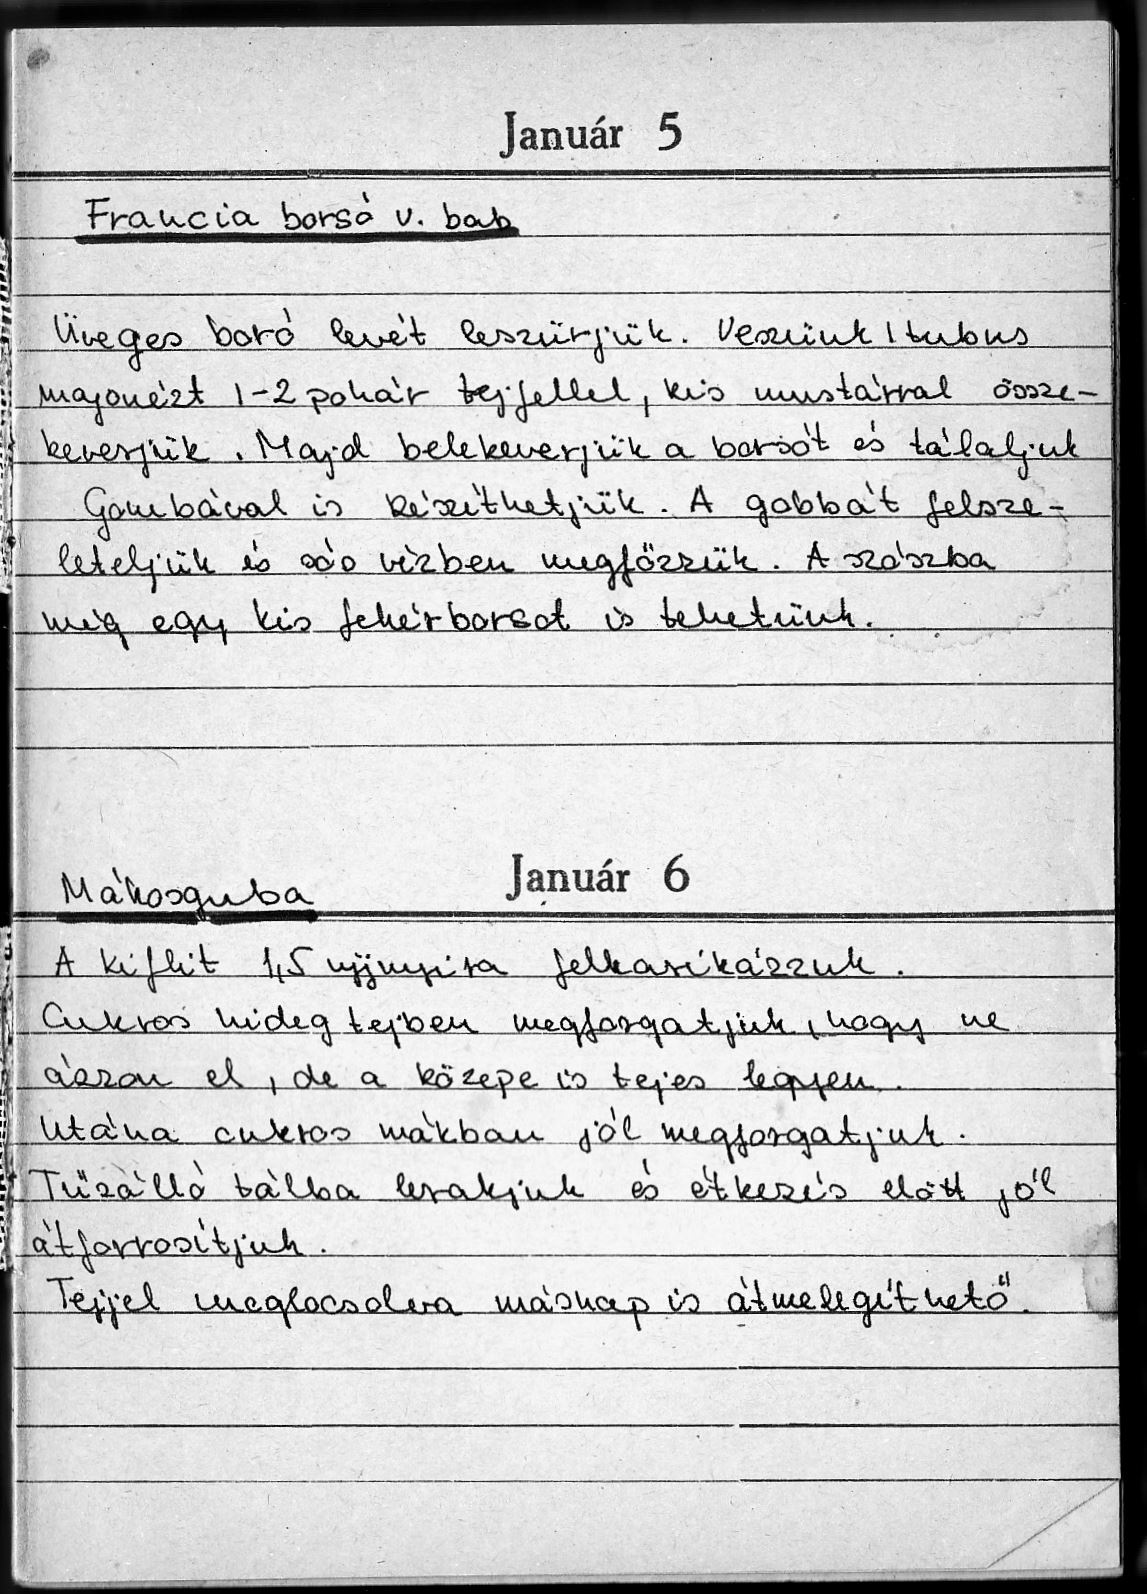 Január 5
Francia borsó v. bab
Üveges boró levét leszürjük. Veszünk 1 tubus
majonézt 1-2 pohár tejfellel, kis mustárral össze-
keverjük. Majd belekeverjük a borsót és tálaljuk
Gombával is készíthetjük. A gobbát felsze-
leteljük és sós vízben megfőzzük. A szószba
még egy kis fehérborsot is tehetünk.
Január 6
Mákosguba
A kiflit 1,5 ujjnyira felkarikázzuk.
Cukros hideg tejben megforgatjuk, hogy ne
ázzon el, de a közepe is tejes legyen.
Utána cukros mákban jól megforgatjuk.
Tűzálló tálba lerakjuk és étkezés előtt jól
átforrosítjuk.
Tejjel meglocsolva másnap is átmelegíthető.